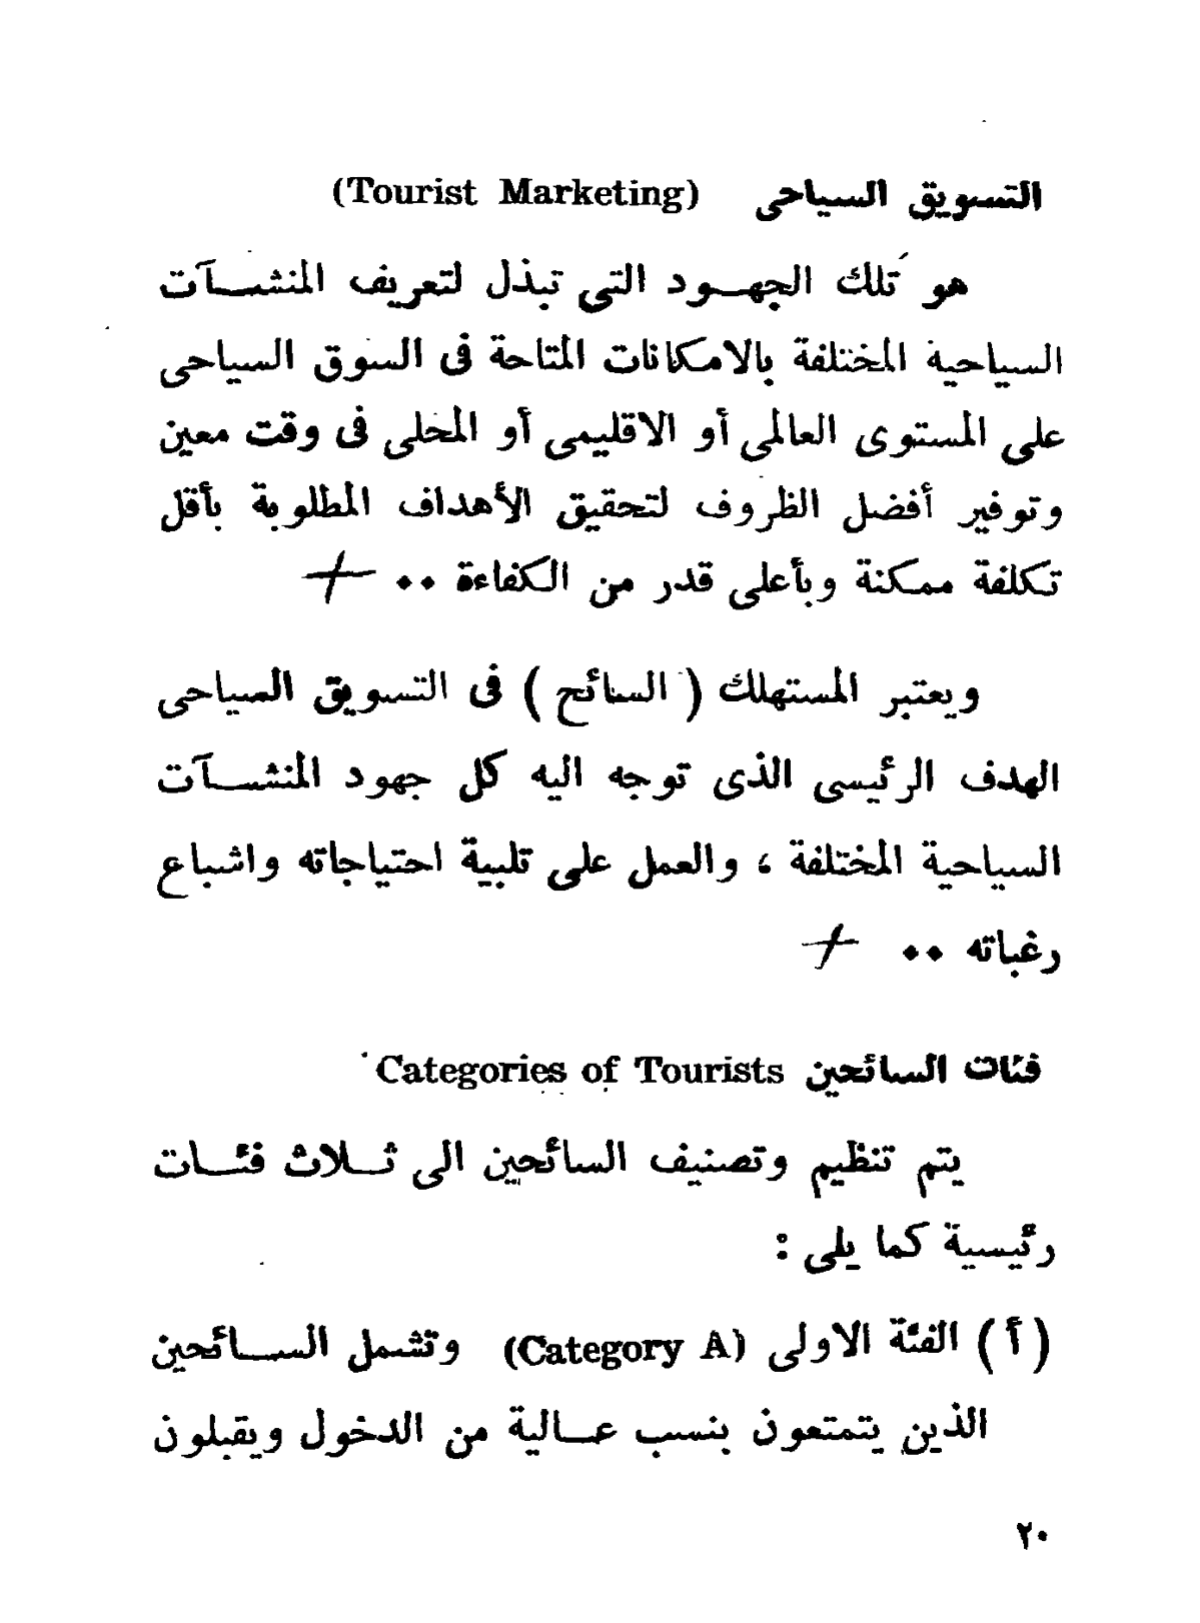 التسويق السياحى (Tourist Marketing)
هو تلك الجهود التى تبذل لتعريف المنشآت
السياحية المختلفة بالامكانات المتاحة فى السوق السياحى
على المستوى العالمى أو الاقليمى أو المحلى فى وقت معين
وتوفير أفضل الظروف لتحقيق الأهداف المطلوبة بأقل
تكلفة ممكنة وبأعلى قدر من الكفاءة ٠٠
ويعتبر المستهلك ( السائح ) فى التسويق السياحى
الهدف الرئيسى الذى توجه اليه كل جهود المنشآت
السياحية المختلفة ، والعمل على تلبية احتياجاته واشباع
رغباته ٠٠
فئات السائحين Categories of Tourists
يتم تنظيم وتصنيف السائحين الى ثلاث فئات
رئيسية كما يلى :
( أ ) الفئة الاولى (Category A) وتشمل السائحين
الذين يتمتعون بنسب عالية من الدخول ويقبلون
٢٠